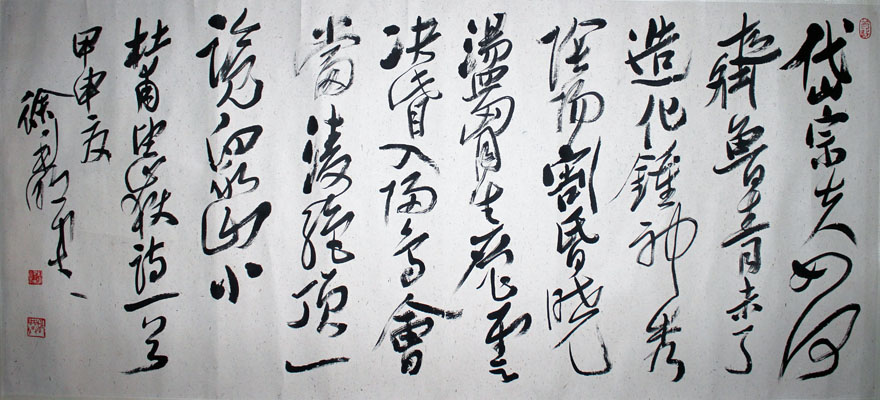 岱宗夫如何
齊魯青未了
造化鍾神秀
陰陽割昏曉
盪胷生層雲
决眥入歸鳥會
當凌絕頂一
覽眾山小
杜甫望嶽詩一首
甲申夏
徐